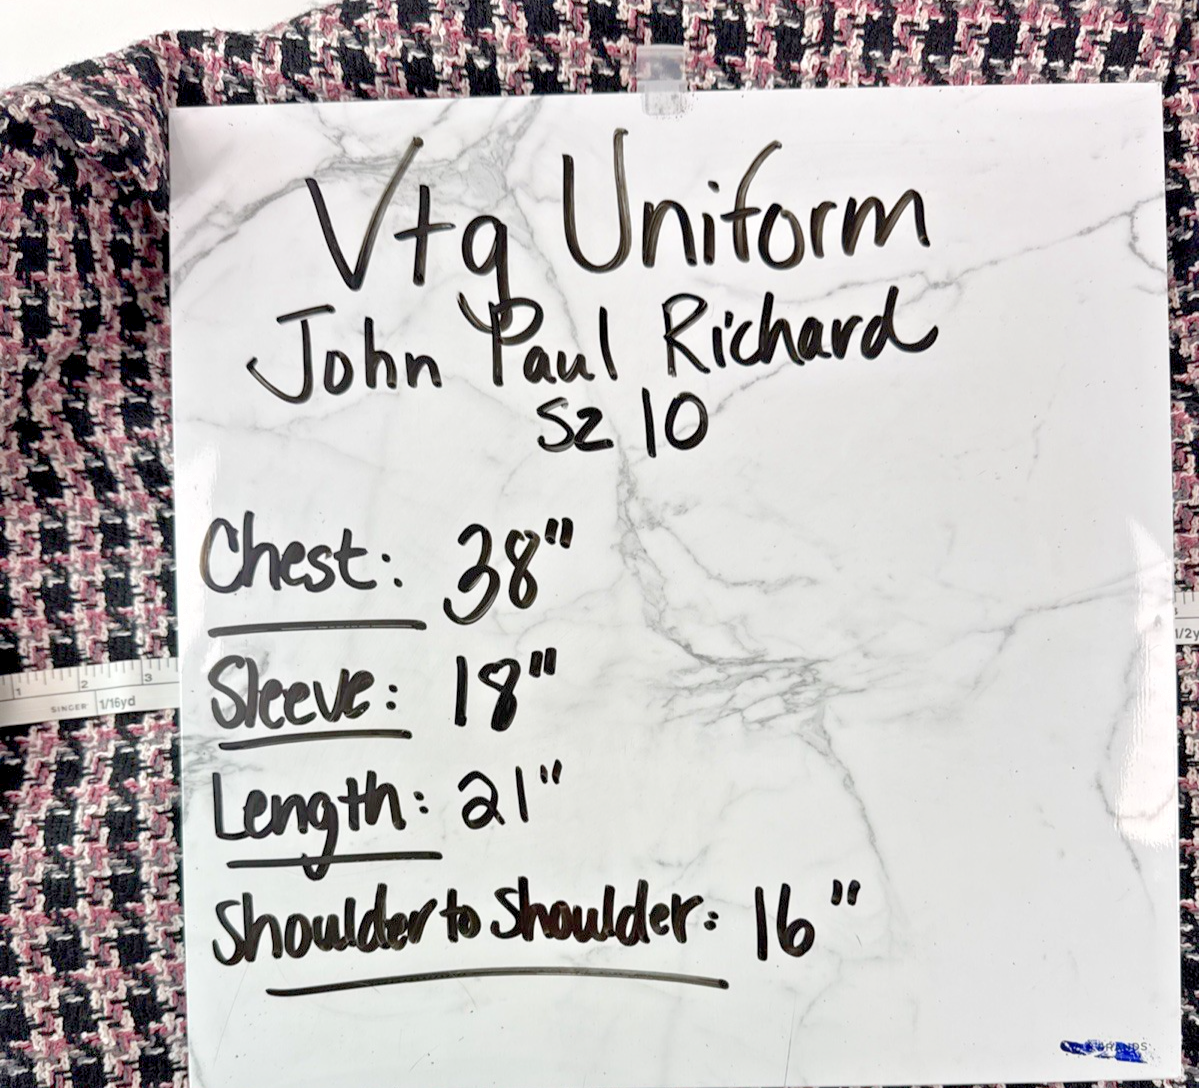 Vtg Uniform
John Paul Richard
Sz 10
Chest: 38"
Sleeve: 18"
Length: 21"
Shoulder to Shoulder: 16"
1 2 3
SINGER 1/16yd
1/2y